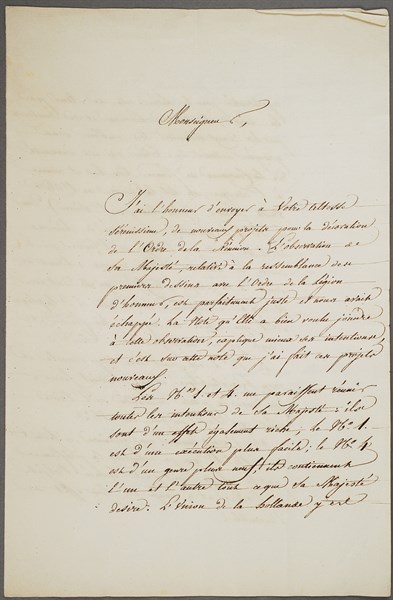 Monseigneur,
J'ai l'honneur d'envoyer à Votre Altesse
Sérénissime, de nouveaux projets pour la décoration
de l'Ordre de la Réunion. L'observation de
Sa Majesté, relative à la ressemblance des
premiers dessins avec l'Ordre de la légion
d'honneur, est parfaitement juste et nous avait
échappé. La Note qu'Elle a bien voulu joindre
à cette observation, explique mieux ses intentions,
et c'est sur cette note que j'ai fait ces projets
nouveaux.
Les Nos 1. et 4. me paraissent réunir
toutes les intentions de Sa Majesté : ils
sont d'un effet également riche; le No 1.
est d'une exécution plus facile; le No 4
est d'un genre plus neuf; ils contiennent
l'un et l'autre tout ce que Sa Majesté
desire. L'Union de la hollande y est